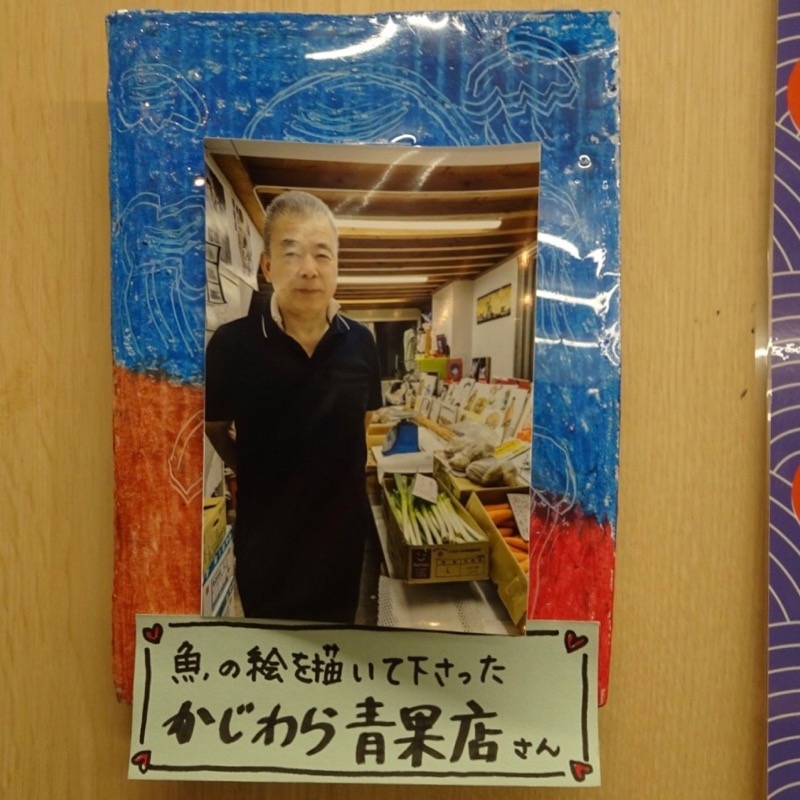 魚の絵を描いて下さった
かじわら青果店さん